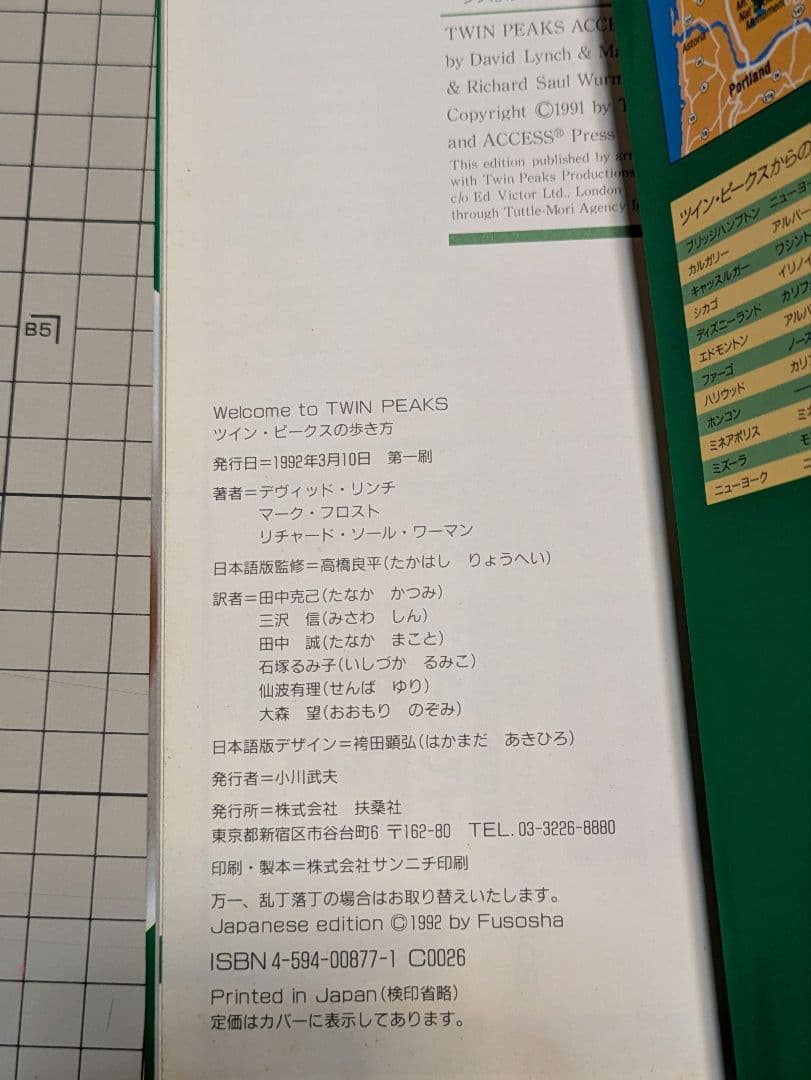 TWIN PEAKS
by David Lynch &
& Richard Saul
Copyright ©1991 by
and ACCESS® Press
This edition published by
with Twin Peaks Productions
c/o Ed Victor Ltd., London
through Tuttle-Mori Agency
Welcome to TWIN PEAKS
ツイン・ピークスの歩き方
発行日＝1992年3月10日　第一刷
著者＝デヴィッド・リンチ
マーク・フロスト
リチャード・ソール・ワーマン
日本語版監修＝高橋良平(たかはし　りょうへい)
訳者＝田中克己(たなか　かつみ)
三沢　信(みさわ　しん)
田中　誠(たなか　まこと)
石塚るみ子(いしづか　るみこ)
仙波有理(せんば　ゆり)
大森　望(おおもり　のぞみ)
日本語版デザイン＝袴田顕弘(はかまだ　あきひろ)
発行者＝小川武夫
発行所＝株式会社　扶桑社
東京都新宿区市谷台町6 〒162-80　TEL. 03-3226-8880
印刷・製本＝株式会社サンニチ印刷
万一、乱丁落丁の場合はお取り替えいたします。
Japanese edition ©1992 by Fusosha
ISBN 4-594-00877-1 C0026
Printed in Japan(検印省略)
定価はカバーに表示してあります。
B5
Astoria
Portland
ツイン・ピークスからの
ブリッジハンプトン ニューヨー
カルガリー アルバー
キャッスルガー ワシント
シカゴ イリノイ
ディズニーランド カリフ
エドモントン アルバ
ファーゴ ノース
ハリウッド カリ
ホンコン
ミネアポリス ミネ
ミズーラ モ
ニューヨーク